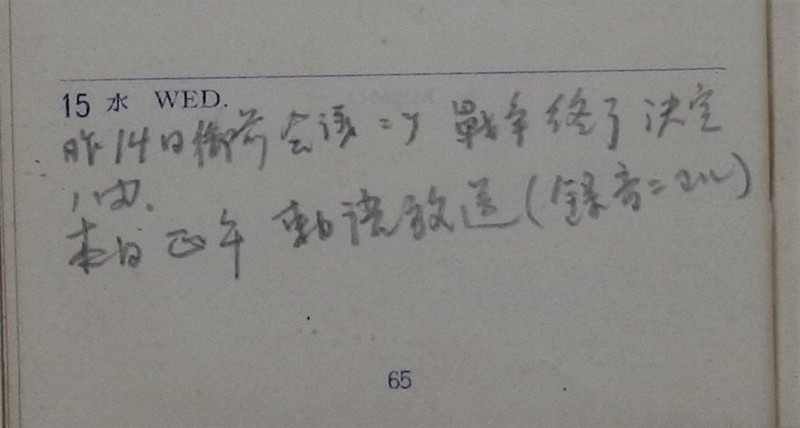 15 水 WED.
昨14日御前会議ニテ戦争終了決定
ノ由.
本日正午 勅語放送(録音ニヨル)
65